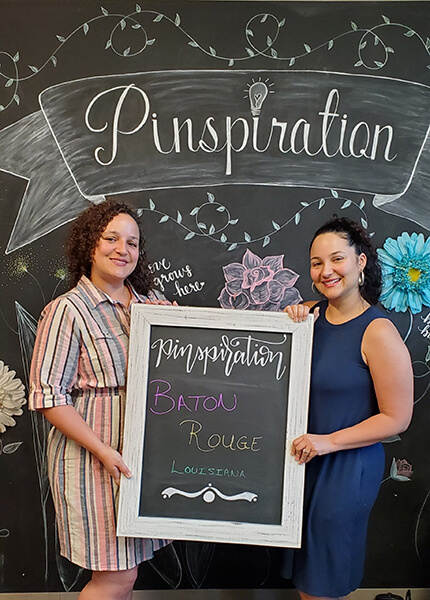 Pinspiration
love
grows
here
pinspiration
BATON
ROUGE
LOUISIANA